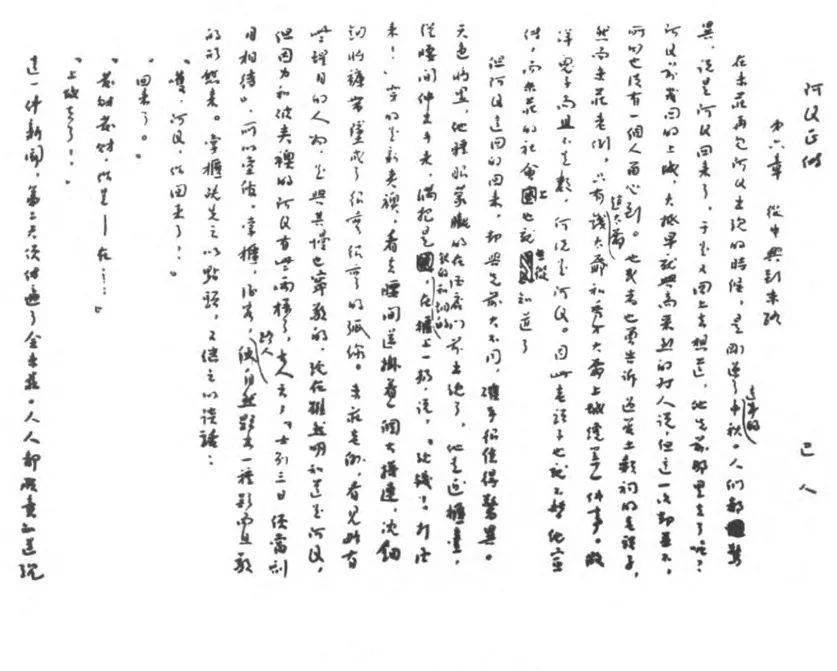 阿Q正傳 巴人
第六章 從中興到末路
在未莊再見阿Q出現的時候,是剛過了這年的中秋。人們都驚
異,說是阿Q回來了,于是又回上去想道,他先前那里去了呢?
阿Q前幾回的上城,大抵早就興高采烈的對人說,但這一次卻並不,
所以也沒有一個人留心到。他或者也曾告訴過管土穀祠的老頭子,
然而未莊老例,只有趙太爺錢太爺和秀才大爺上城纔算一件事。假
洋鬼子尚且不足數,何況是阿Q。因此老頭子也就不替他宣
傳,而未莊的社會上也就無從知道了
但阿Q這回的回來,卻與先前大不同,確乎很值得驚異。
天色將黑,他睡眼朦朧的在酒店門前出現了,他走近櫃臺,
從腰間伸出手來,滿把是銀的和銅的,在櫃上一扔,說,“現錢!打酒
來!”穿的是新夾襖,看去腰間還掛着一個大搭連,沈鈿
鈿的將褲帶墜成了很彎很彎的弧線。未莊老例,看見略有
些醒目的人物,是與其慢也寧敬的,現在雖然明知道是阿Q,
但因为和破夾襖的阿Q有些兩樣了,古人云,“士別三日便當刮
目相待”,所以堂倌,掌櫃,酒客,路人,便自然顯出一種疑而且敬
的形態來。掌櫃既先之以點頭,又繼之以談話:
“嚄,阿Q,你回來了!”
“回來了。”
“發財發財,你是——在……”
“上城去了!”
這一件新聞,第二天便傳遍了全未莊。人人都願意知道現